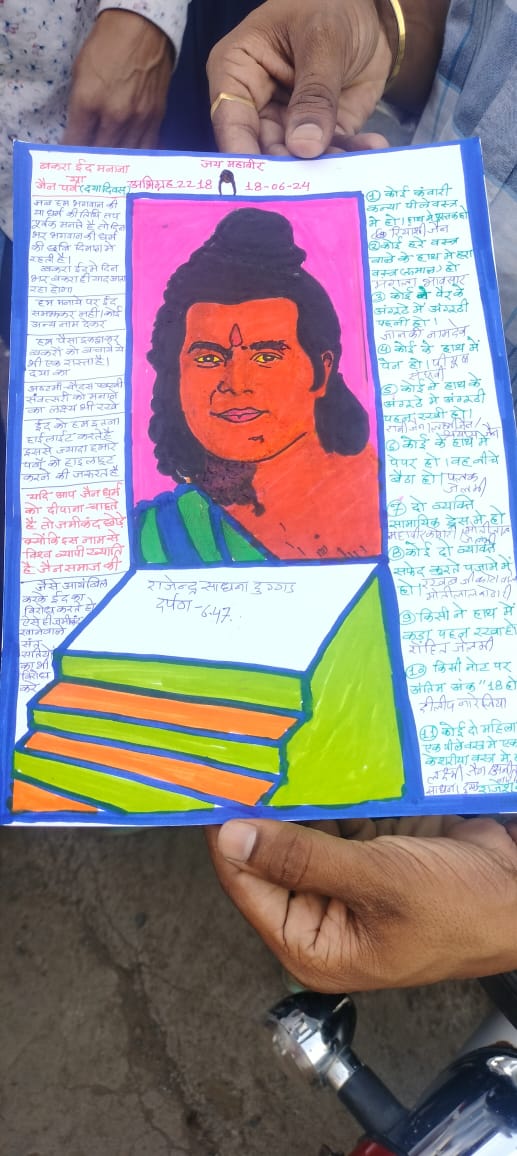 जय महावीर
बकरा ईद मनाना
या
जैन पर्व (दया दिवस)
अभिग्रह 2218 18-06-24
जब हम भगवान की
या धर्म की तिथि तप
पूर्वक मनाते है तो दिन
भर भगवान की धर्म
की स्मृति दिमाग में
रहती है।
बकरा ईद में दिन
भर बकरा ही याद आता
रहा होगा
हम मनाये पर ईद
समझकर नहीं कोई
अन्य नाम देकर
हम पैसा इकट्ठा कर
बकरों को बचाये ये
भी एक रास्ता है।
दया का
अष्टमी चौदस पक्खी
संवत्सरी को मनाने
का लक्ष्य भी रखे
ईद को हम इतना
हाईलाईट करते है
इससे ज्यादा हमारे
पर्वों को हाईलाइट
करने की जरूरत है
यदि आप जैन धर्म
को दीपाना चाहते
है तो जमीकंद छोड़े
क्योंकि इस नाम से
विश्व व्यापी ख्याति
है जैन समाज की
जैसे आयंबिल
करके ईद का
विरोध करते हो
ऐसे ही जमीकंद
खाने वाले
संत
सतियों
का भी
विरोध
करे
राजेन्द्र साधना दुग्गड
दर्पण-647.
① कोई कंवारी
कन्या पीले वस्त्र
में हो। हाथ में
जैन
② कोई हरे वस्त्र
वाले के हाथ में हरा
वस्त्र (रूमाल) हो
भावसार
③ कोई के पैर के
अंगूठे में अंगूठी
पहनी हो।
जानकी नामदेव
④ कोई के हाथ में
पेन हो। पीयूष
⑤ कोई के हाथ के
अंगूठे में अंगूठी
पहन रखी हो।
जैन
⑥ कोई के हाथ में
पेपर हो। वह नीचे
बैठा हो।
⑦ दो व्यक्ति
सामायिक ड्रेस में हो
⑧ कोई दो व्यक्ति
सफेद कुरते पजामे में
हो।
⑨ किसी ने हाथ में
कड़ा पहन रखा हो
रोहित
⑩ किसी नोट पर
अंतिम अंक "18 हो
दीलीप
⑪ कोई दो महिला
एक पीले वस्त्र में एक
केशरीया वस्त्र में
लक्ष्मी जैन
साधना